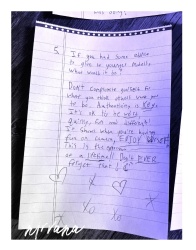 5.
If you had some advice
to give to younger models
what would it be?
Don't compromise yourself for
what you think others want you
to be. Authenticity is key.
It's ok to be weird,
quirky, fun and different!
It shows when you're having
fun on camera, ENJOY yourself
This is the
as a Don't EVER
forget that!
X
X
XO
XO